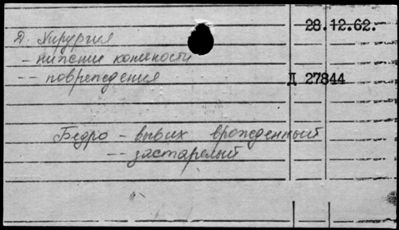 Д. Хирургия
28.12.62.
- нижсти конечности
-- повреждения
Д 27844
Бедро - вывих врожденный
-- застарелый